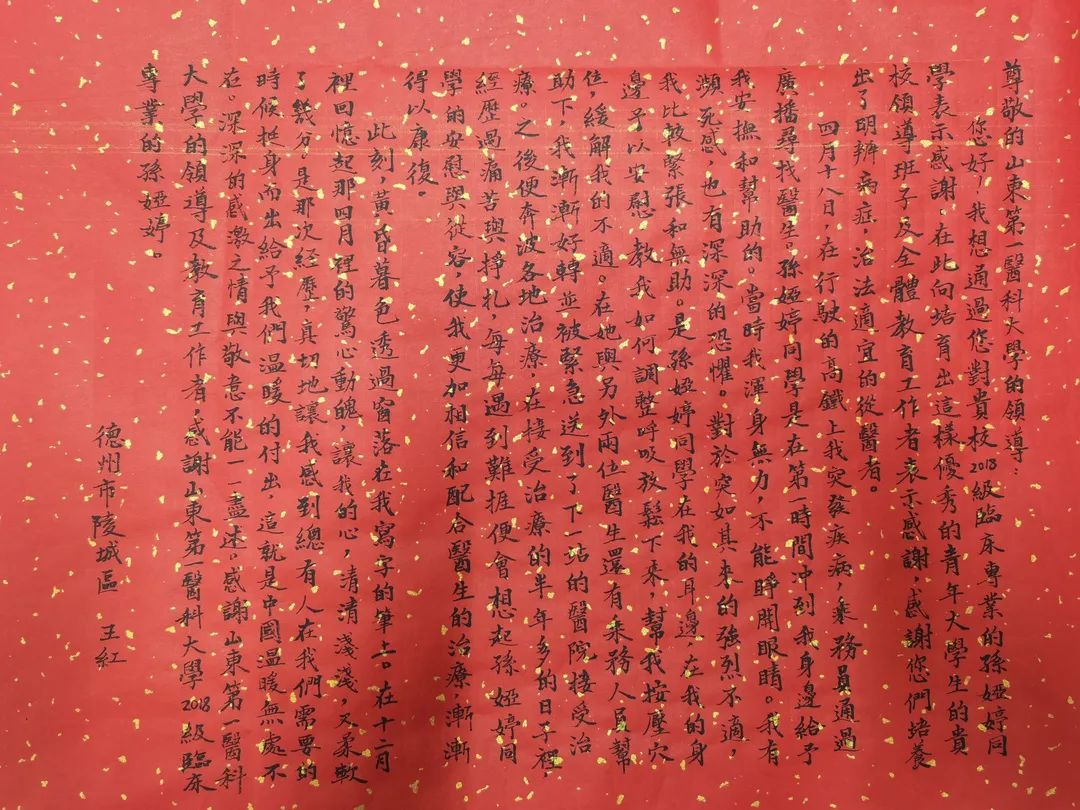 尊敬的山東第一醫科大學的領導：
您好，我想通過您對貴校2018級臨床專業的孫婭婷同
學表示感謝。在此向培育出這樣優秀的青年大學生的貴
核領導班子及全體教育工作者表示感謝，感謝您們培養
出了明辨病症，治法適宜的從醫者。
四月十八日，在行駛的高鐵上我突發疾病，乘務員通過
廣播尋找醫生。孫婭婷同學是在第一時間冲到我身邊給予
我安撫和幫助的。當時我渾身無力，不能睜開眼睛。我有
瀕死感，也有深深的恐懼。對於突如其來的強烈不適，
我比較緊張和無助。是孫婭婷同學在我的耳邊，在我的身
邊予以安慰，教我如何調整呼吸放鬆下來，幫我按壓穴
位，緩解我的不適。在她與另外兩位醫生還有乘務人員幫
助下，我漸漸好轉並被緊急送到了下一站的醫院接受治
療。之後便奔波各地治療，在接受治療的半年多的日子裡，
經歷過痛苦與掙扎，每每遇到難捱便會想起孫婭婷同
學的安慰與從容，使我更加相信和配合醫生的治療，漸漸
得以康復。
此刻，黃昏暮色透過窗落在我寫字的筆上。在十二月
裡回憶起那四月裡的驚心動魄，讓我的心，清清淺淺，又柔軟
了幾分。是那次經歷，真切地讓我感到總有人在我們需要的
時候挺身而出給予我們溫暖的付出，這就是中國溫暖無處不
在。深深的感激之情與敬意不能一一盡述。感謝山東第一醫科
大學的領導及教育工作者，感謝山東第一醫科大學2018級臨床
專業的孫婭婷。
德州市陵城區 王紅